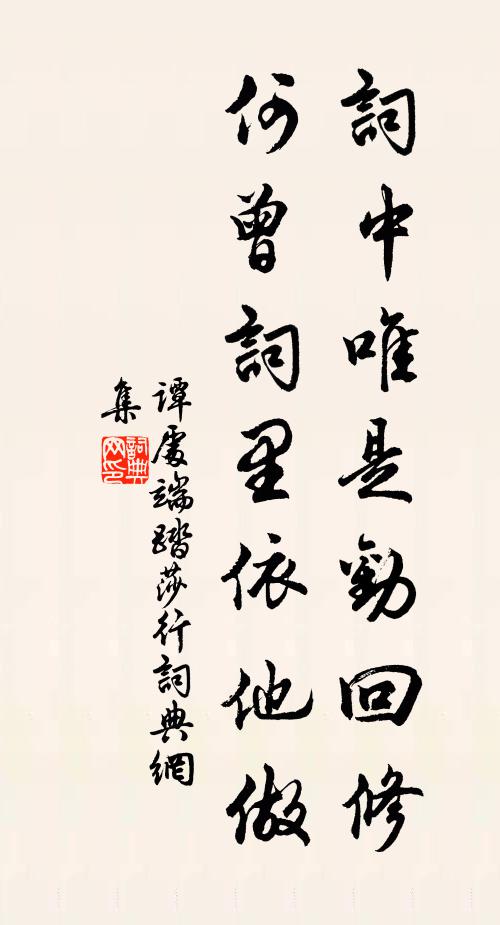 詞中唯是勸回修
何曾詞里依他做
譚處端踏莎行詞典網
集
詞典
网印